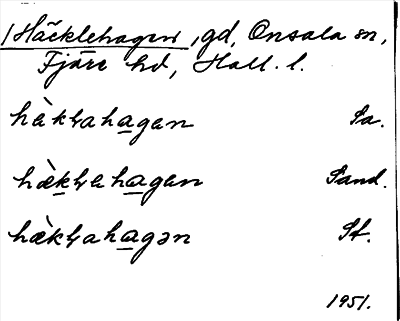 /Häcklehagen, gd, Onsala sn,
Fjäre hd, Hall. l.
hàkꝇahagen Sa.
hæ̀kꝇahagen Sand.
hæ̀kꝇahagən Sf.
1951.